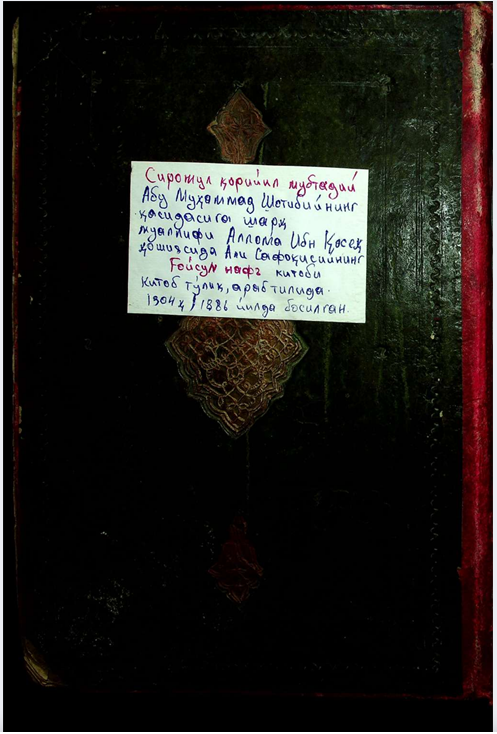 Сирожул қорийил мубтадий
Абу Муҳаммад Шотибийнинг
қасидасига шарҳ
муаллифи Аллома Ибн Қосеҳ
ҳошиясида Али Сафоқисийнинг
Ғойсун нафъ китоби
Китоб тўлиқ, араб тилида.
1304ҳ / 1886 йилда босилган.